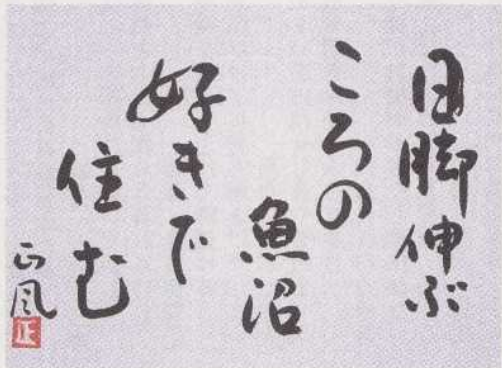 日脚伸ぶ
ころの
魚沼
好きで
住む
正風
正